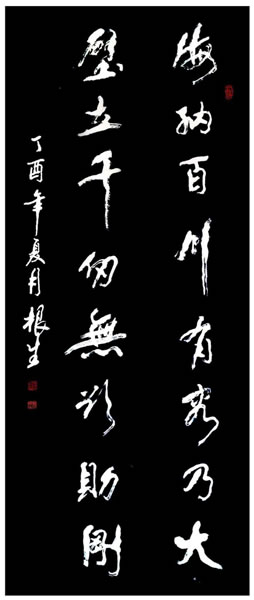 海納百川有容乃大
壁立千仞無欲則剛
丁酉年夏月根生